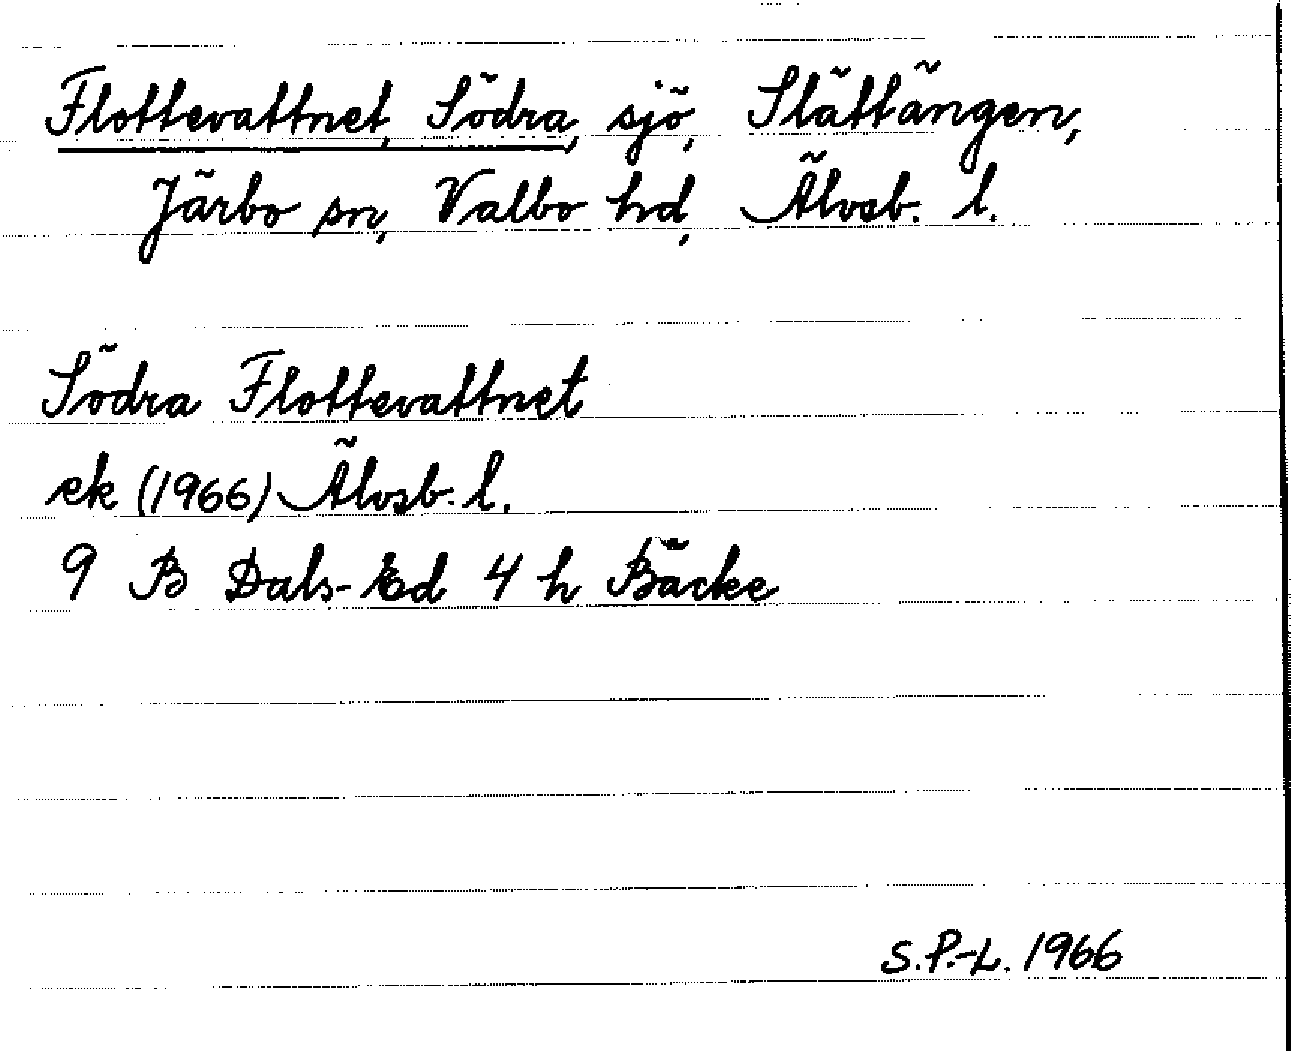 Flottevattnet, Södra, sjö, Slättängen,
Järbo sn, Valbo hd, Älvsb. l.
Södra Flottevattnet
ek (1966) Älvsb. l.
9 B Dals-Ed 4 h Bäcke
S.P.-L. 1966